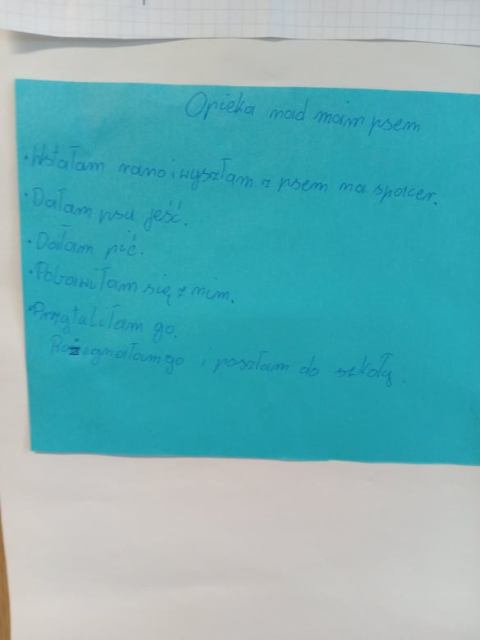 Opieka nad moim psem
• Wstałam rano i wyszłam z psem na spacer.
• Dałam psu jeść.
• Dałam pić.
• Pobawiłam się z nim.
• Przytuliłam go.
Pożegnałam go i poszłam do szkoły.